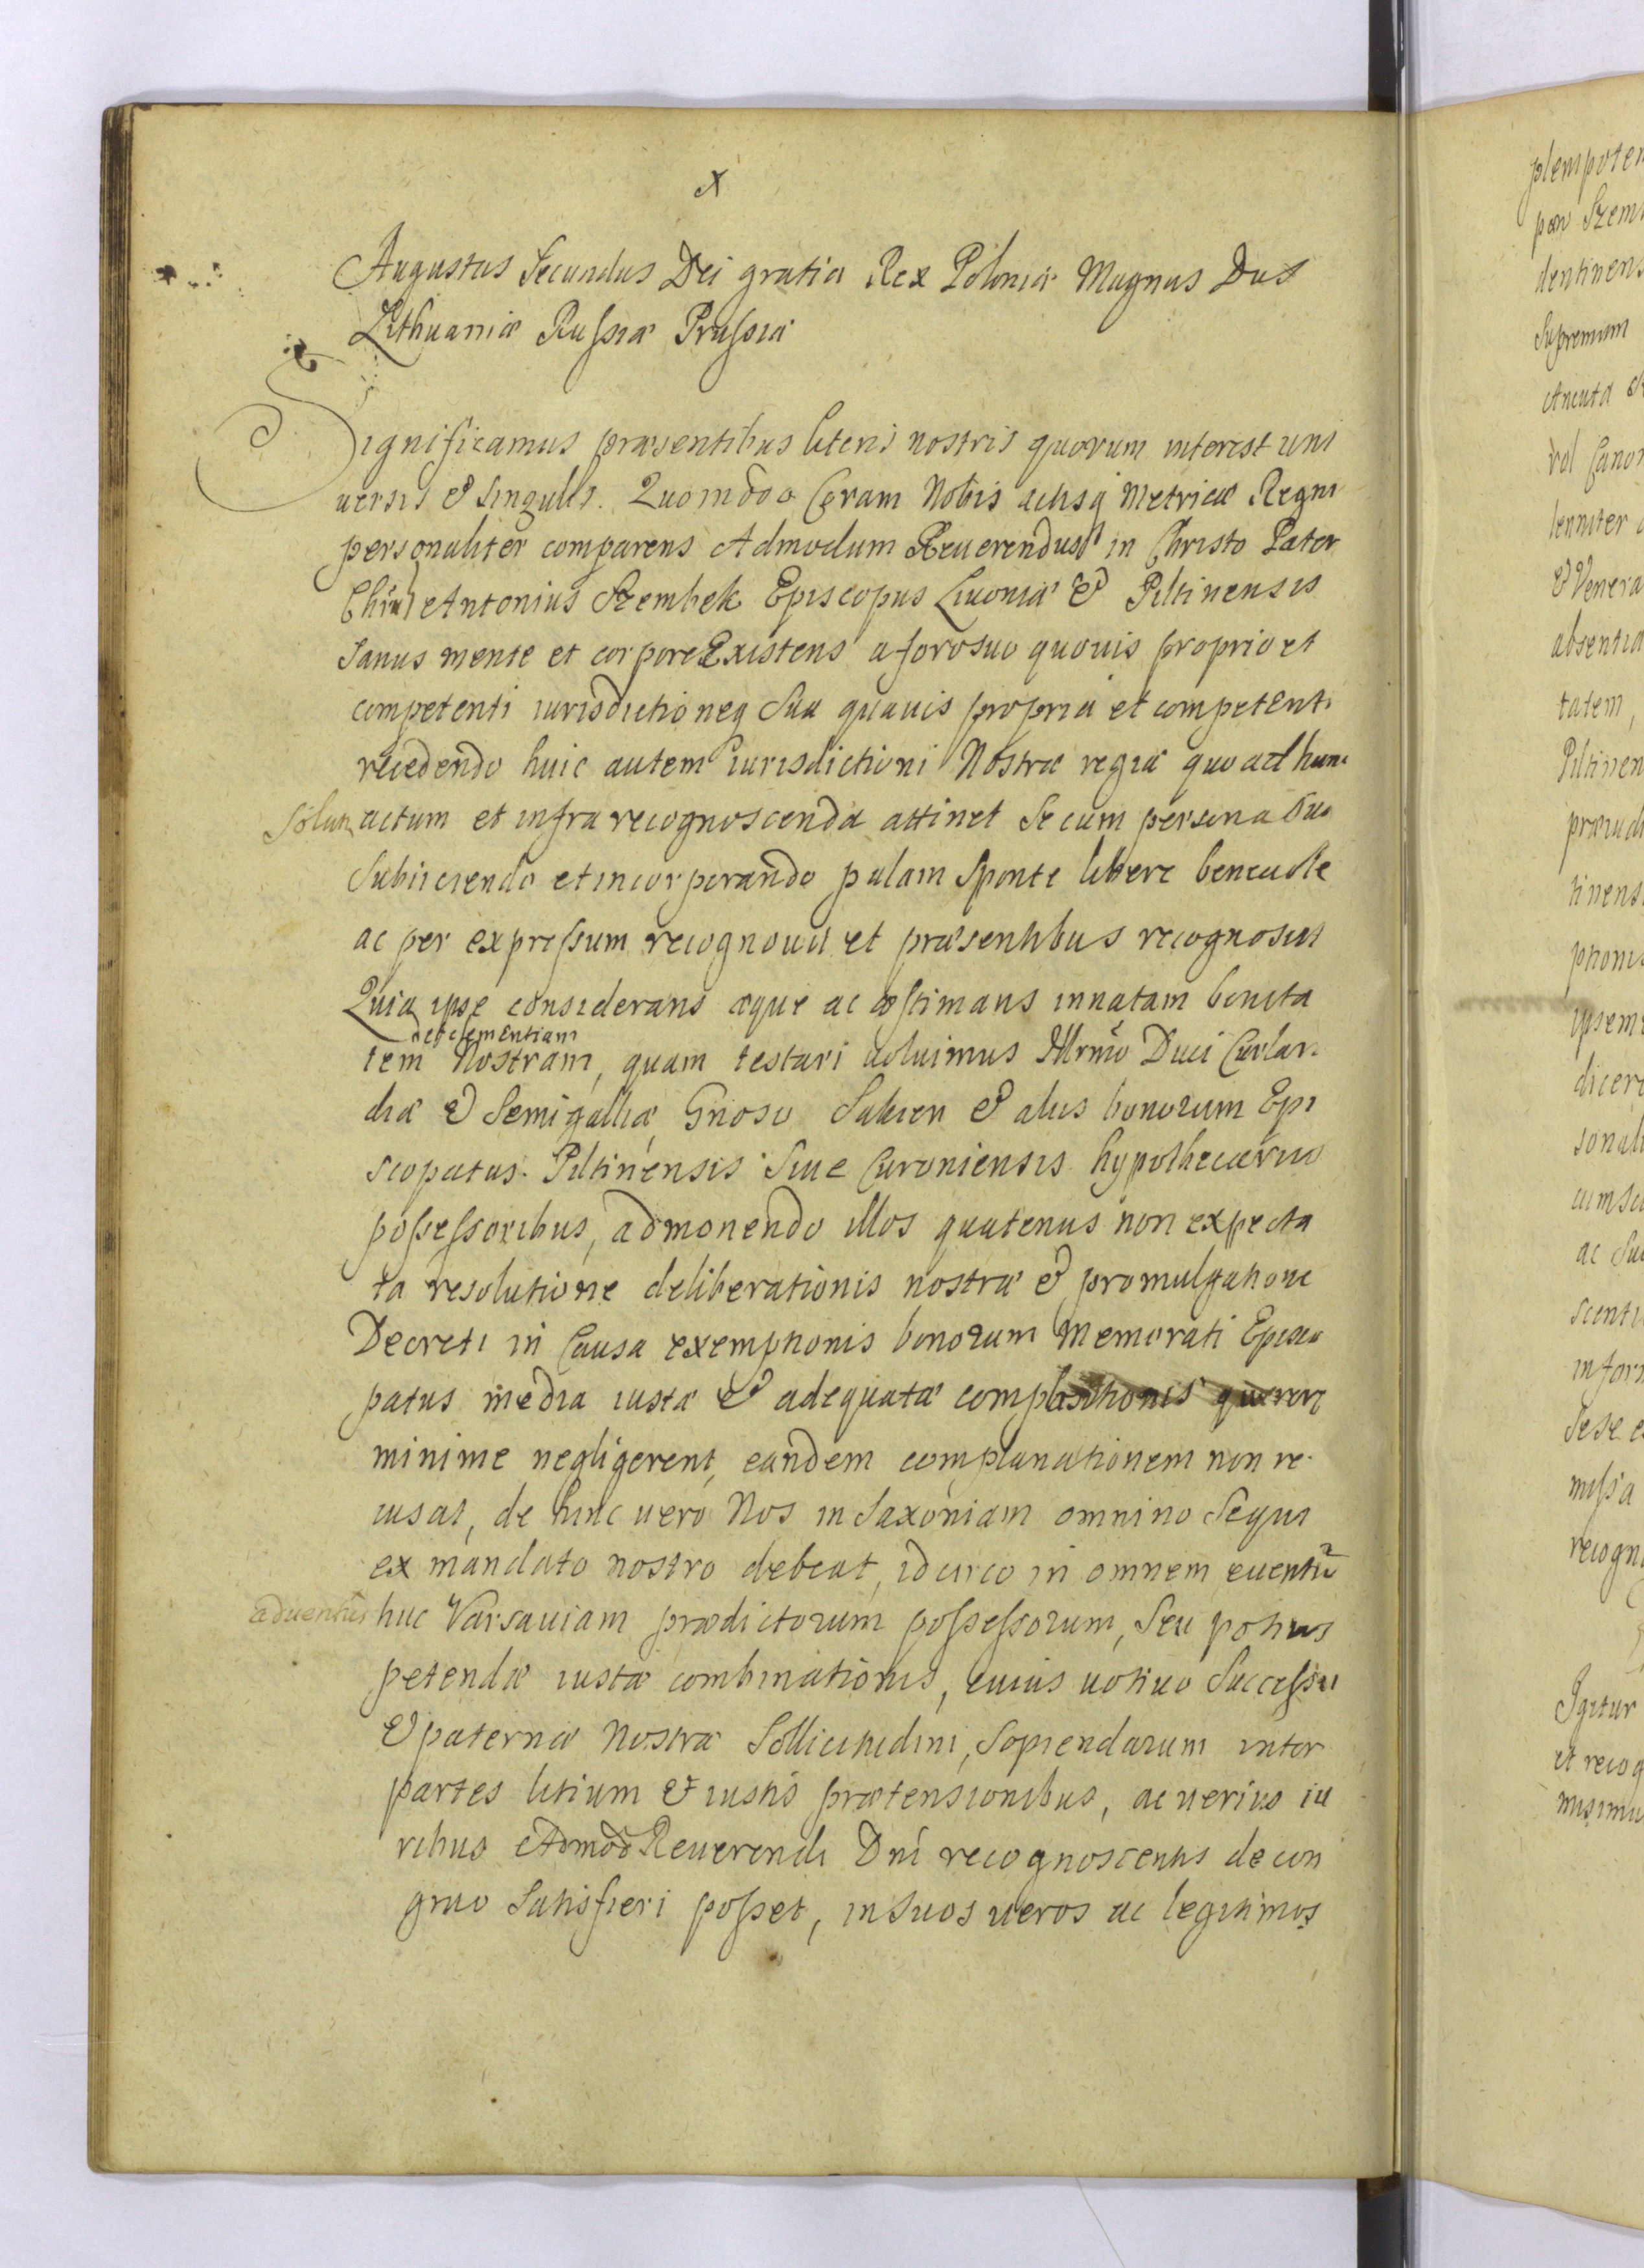 X
Augustus Secundus Dei gratia Rex Poloniæ Magnus Dux
Lithuaniæ Russiæ Prussiæ
Significamus præsentibus literis nostris quorum interest uni
uersis & singulis. Quomodo Coram Nobis actisq Metricæ Regni
personaliter comparens Admodum Reuerendus in Christo Pater
Antonius Szembek Episcopus Liuoniæ & Piltinensis
Sanus mente et corpore Existens a foro suo quouis proprio et
competenti iurisdictioneq Sua quauis propria et competenti
recedendo huic autem iurisdictioni Nostræ regiæ quo ad hunc
Solum actum et infra recognoscenda attinet Se cum persona Sua
Subiiciendo et incorporando palam Sponte libere beneuole
ac per expressum recognouit et præsentibus recognoscit
Quia ipse considerans æque ac æstimans innatam bonita
et clementiam
tem Nostram, quam testari uoluimus Illrmo Duci Curlan
diæ & Semigalliæ, Gnoso Saken & aliis bonorum Epi
scopatus Piltinensis Siue Curoniensis hypothecariis
possessoribus, admonendo illos quatenus non expecta
ta resolutione deliberationis nostræ & promulgatione
Decreti in Causa exemptionis bonorum Memorati Episco
patus media iustæ & adequatæ quærere
minime negligerent, eandem complanationem non re
cusat, de hinc uero Nos in Saxoniam omnino Sequi
ex mandato nostro debeat, idcirco in omnem euentũ
aduentus huc Varsauiam prædictorum possessorum, Seu potius
petendæ iustæ combinationis, cuius uotiuo Successu
& paternæ Nostræ Sollicitudini, Sopiendarum inter
partes litium & iustis prætensionibus, ac uerius iu
ribus Admod Reuerendi Dni recognoscentis de con
gruo Satisfieri posset, in Suos ueros ac legitimos